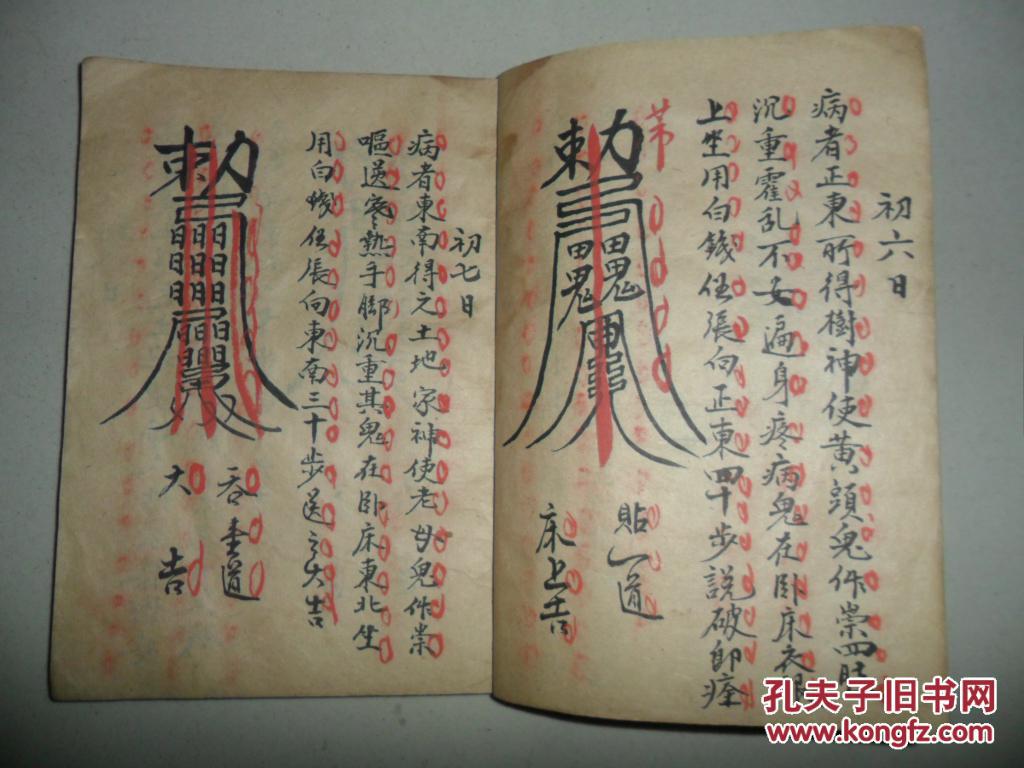 初六日
病者正東所得樹神使黃頭鬼作祟四肢
沉重霍乱不安遍身疼病鬼在卧床衣服
上坐用白錢伍張向正東四十步説破即痊
苐
勅
貼一道
床上吉
初七日
病者東南得之土地家神使老母鬼作祟
嘔逆寒熱手脚沉重其鬼在卧床東北坐
用白錢伍張向東南三十步送之大吉
勅
吞壹道
大吉
孔夫子旧书网
www.kongfz.com